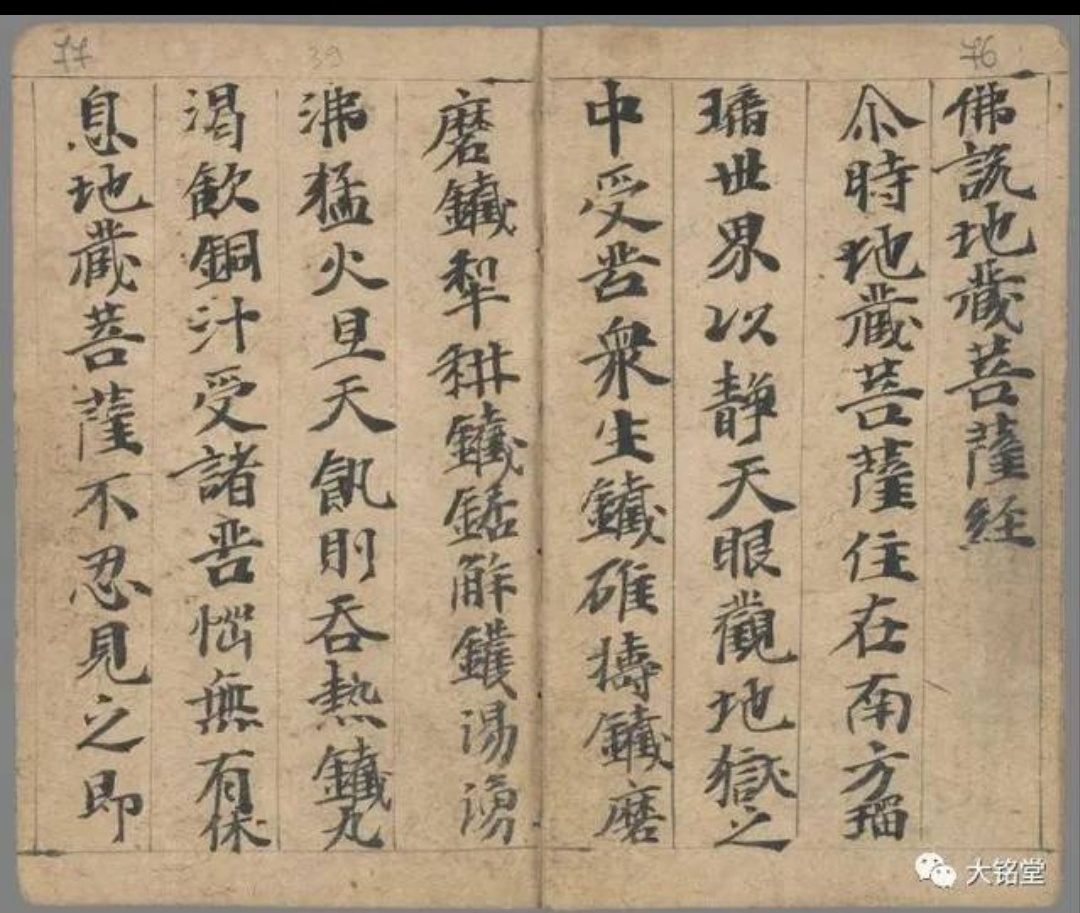 76
佛説地藏菩薩経
尒時地藏菩薩住在南方瑠
璃世界以静天眼觀地獄之
中受苦衆生鐵碓擣鐵磨
磨鐵犁耕鐵鋸解鑊湯湧
77
39
沸猛火旦天飢則吞熱鐵丸
渴飲銅汁受諸苦惱無有休
息地藏菩薩不忍見之即
大铭堂